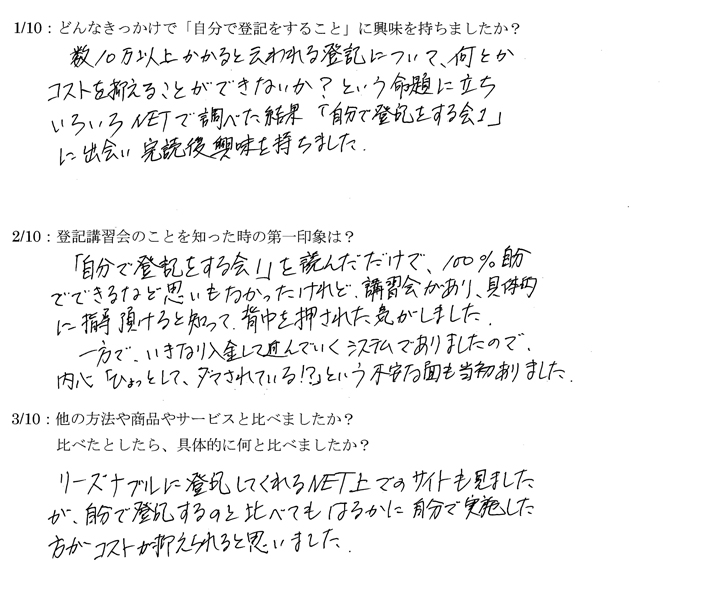 1/10：どんなきっかけで「自分で登記をすること」に興味を持ちましたか？
数10万以上かかると云われる登記について、何とか
コストを抑えることができないか？という命題に立ち
いろいろNETで調べた結果「自分で登記をする会！」
に出会い完読後興味を持ちました.
2/10：登記講習会のことを知った時の第一印象は？
「自分で登記をする会！」を読んだだけで、100％自分
でできるなど思いもなかったけれど、講習会があり、具体的
に指導頂けると知って、背中を押された気がしました.
一方で、いきなり入金して進んでいくシステムでありましたので、
内心「ひょっとして、ダマされている!?」という不安な面も当初ありました.
3/10：他の方法や商品やサービスと比べましたか？
比べたとしたら、具体的に何と比べましたか？
リーズナブルに登記してくれるNET上でのサイトも見ました
が、自分で登記するのと比べてもはるかに自分で実施した
方がコストが抑えられると思いました.